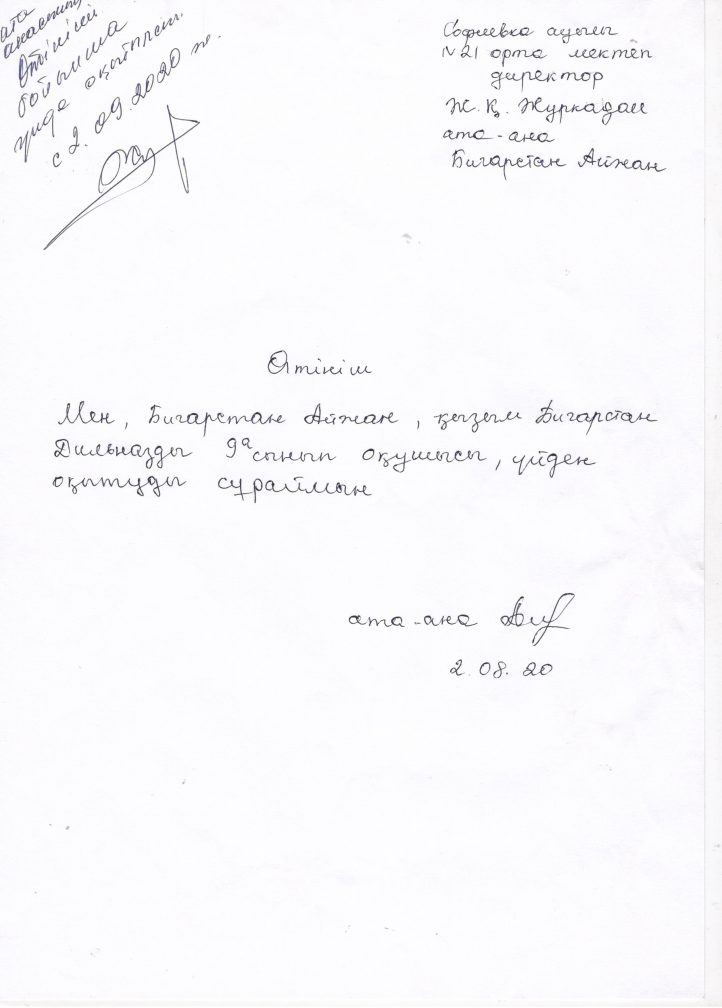 ата
анасының
Өтініші
бойынша
үйде оқытылсын.
с 2.09.2020 ж.
Софиевка ауылы
№21 орта мектеп
директор
Ж.Қ. Журкадам
ата-ана
Бигарстан Айжан
Өтініш
Мен, Бигарстан Айжан, қызым Бигарстан
Дильназды 9ᵃ сынып оқушысы, үйден
оқытуды сұраймын
ата-ана
2.08.20